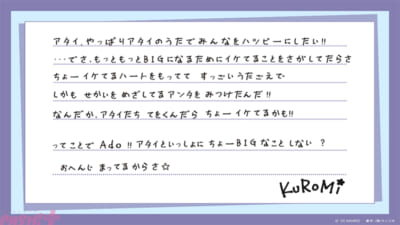 アタイ、やっぱりアタイのうたでみんなをハッピーにしたい!!
…でさ、もっともっとBIGになるためにイケてることをさがしてたらさ
ちょーイケてるハートをもってて すっごいうたごえで
しかも せかいを めざしてるアンタを みつけたんだ!!
なんだか、アタイたち てをくんだら ちょーイケてるかも!!
ってことで Ado !! アタイといっしょに ちょーBIGなこと しない ?
おへんじ まってるからさ☆
KUROMi